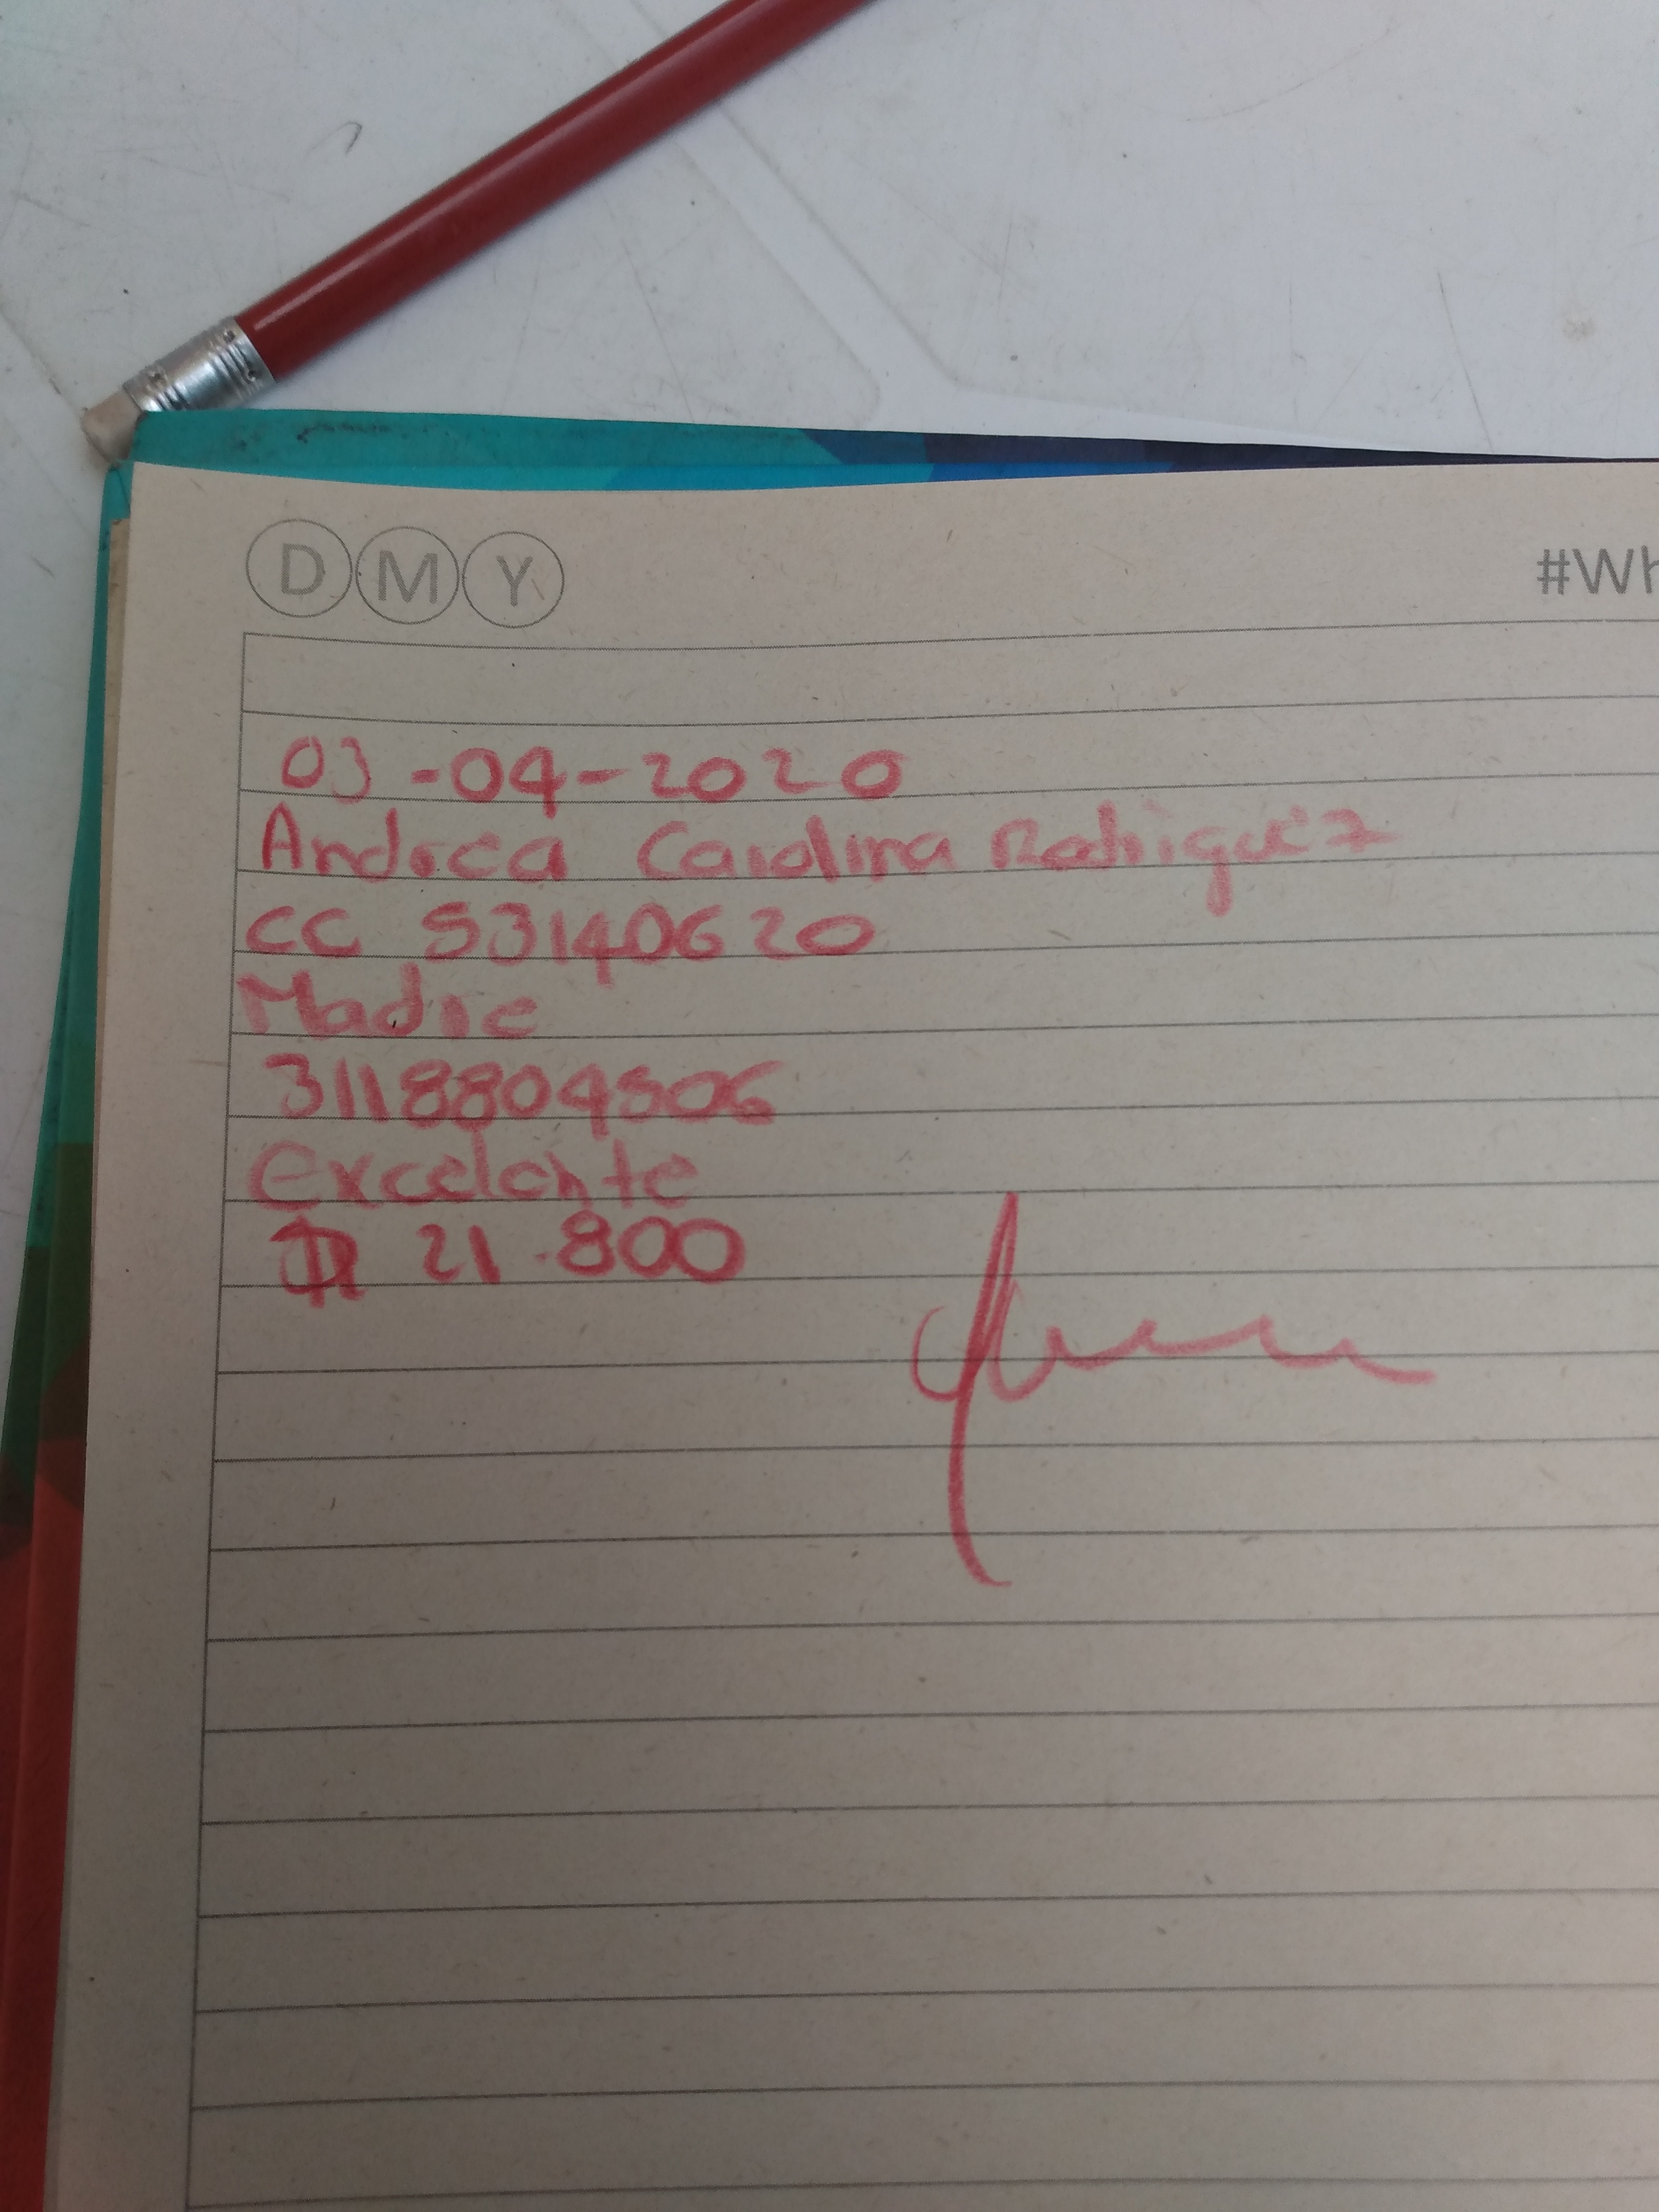 D M Y
#Wh
03-04-2020
Andrea Carolina Rodriguez
CC 53140620
Madre
3118804506
Excelente
$ 21.800